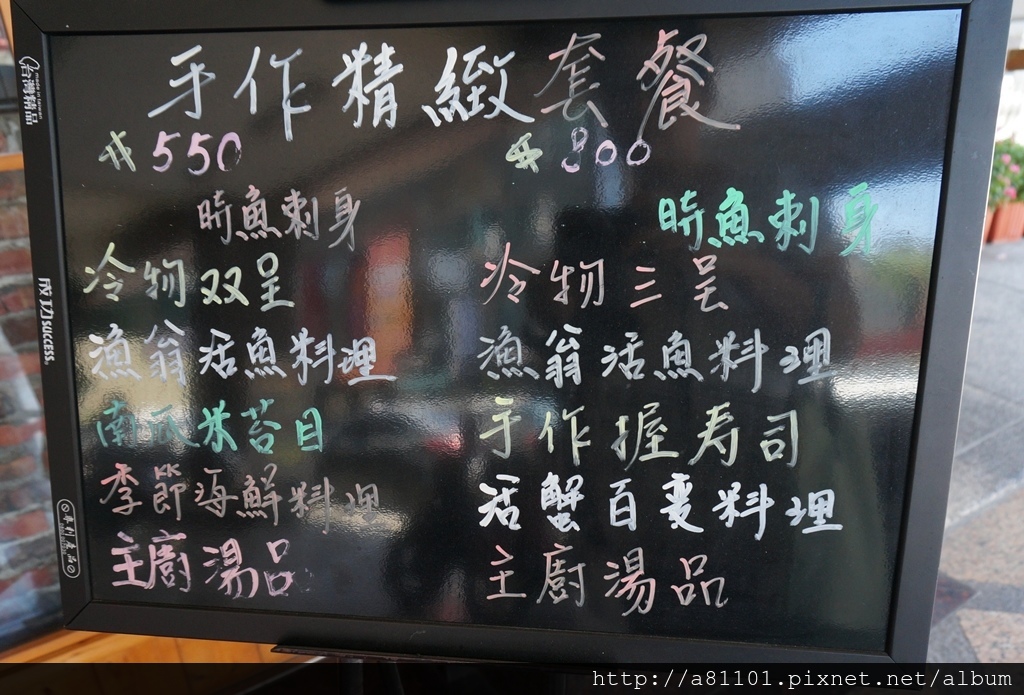 手作精緻套餐
$550
時魚刺身
冷物双呈
漁翁活魚料理
南瓜米苔目
季節海鮮料理
主廚湯品
$800
時魚刺身
冷物三呈
漁翁活魚料理
手作握寿司
活蟹百変料理
主廚湯品
台灣精品
成功SUCCESS
http://a81101.pixnet.net/album